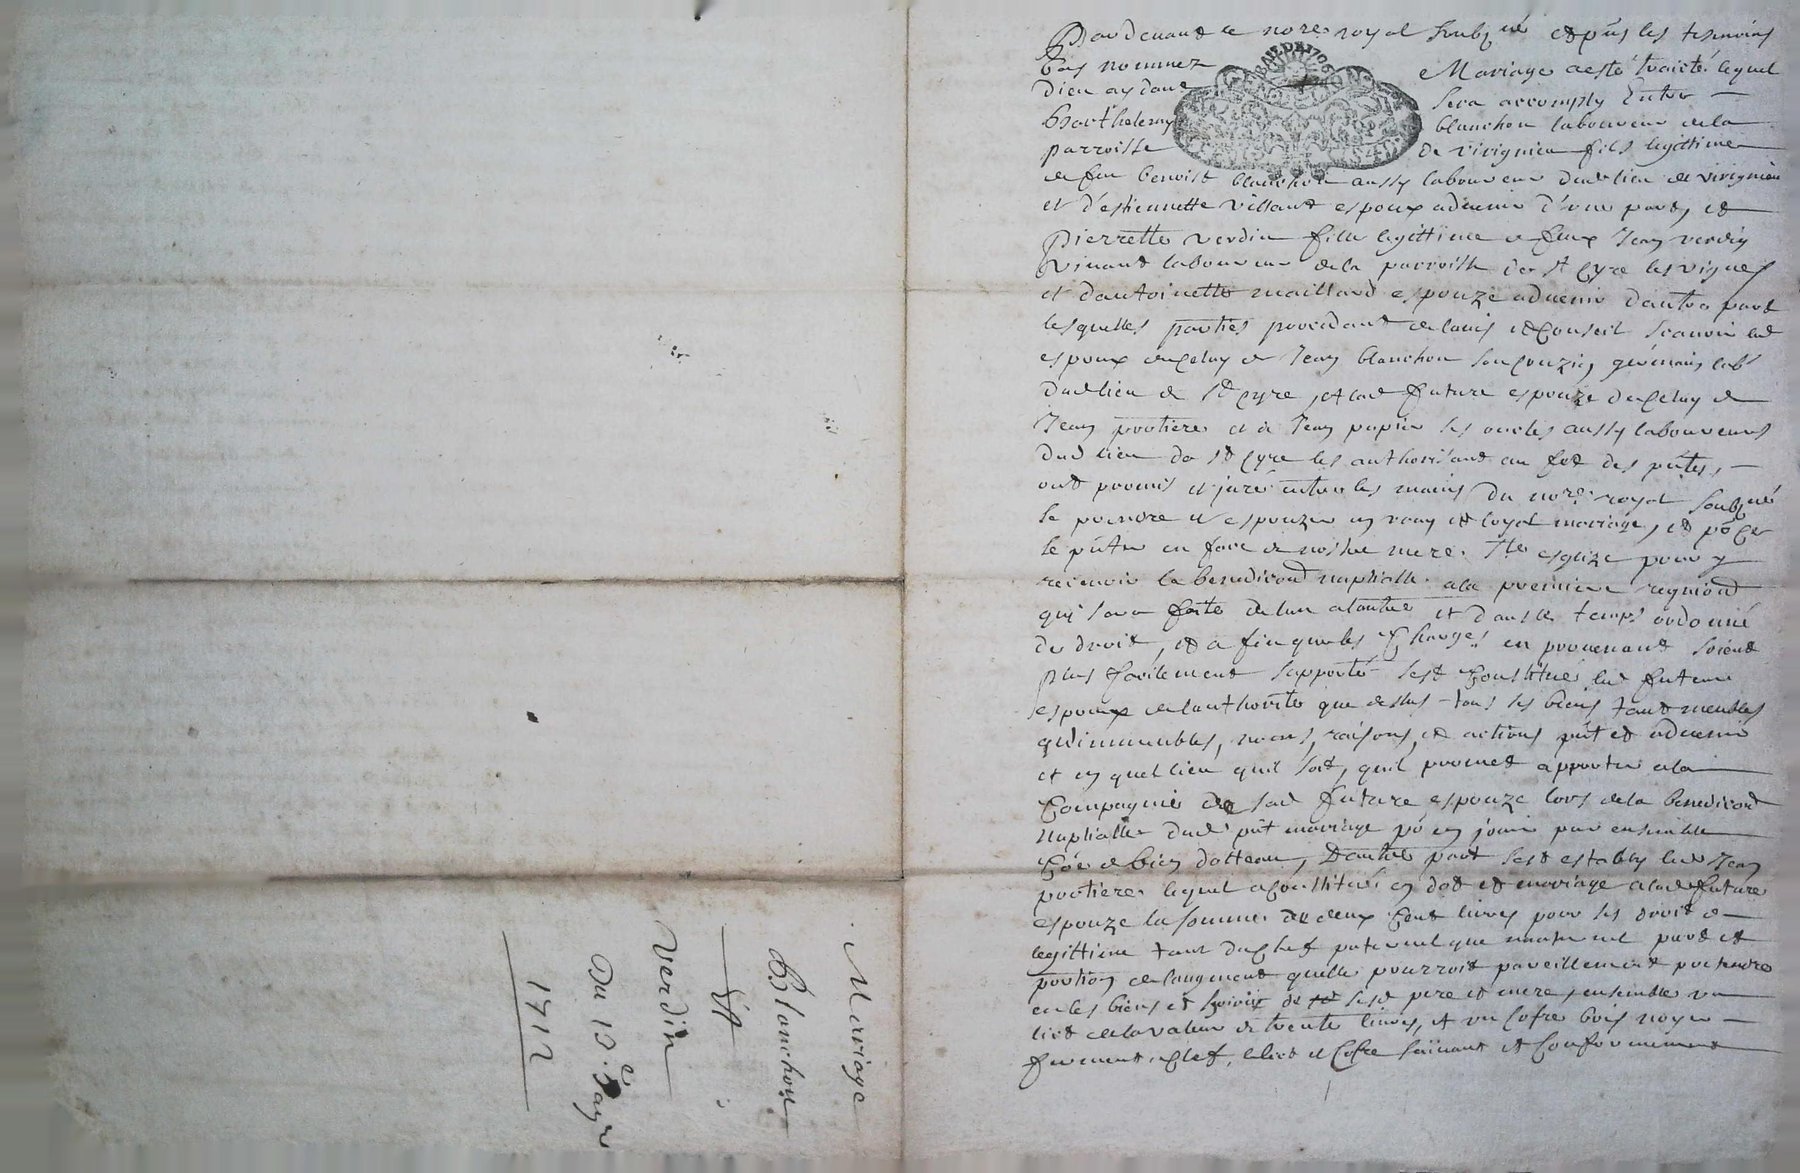 Pardevant le no.re royal soubzné et pns les tesmoins
bas nommez Mariage a esté traicté lequel
Dieu aydant sera accomply Entre
Barthelemy blanchon laboureur de la
parroisse de virignieu fils legittime
de feu benoist blanchon aussy laboureur dud lieu de virignieu
et d'estiennette villard espoux aduenir d'vne part, et
Pierrette verdin fille legittime de feux Jean verdin
viuant laboureur de la parroisse de st Cyre les vignes
et dantoinette maillard espouze aduenir dautre part
lesquelles parties procedant de lauis et Conseil scauoir led
espoux de Celuy de Jean blanchon son Couzin germain labr
dud lieu de st Cyre, et lad future espouze de Celuy de
Jean portiere et de Jean papin ses oncles aussy laboureurs
dud lieu de st Cyre les authorisant au fet des pntes,
ont promis et juré entre les mains du no.re royal soubzné
se prendre et espouzer en vray et loyal mariage, et po Ce
se pnter en face de nostre mere ste esglize pour y
receuoir la benediction nuptialle a la premiere requiond
qui sera faite de lun a lautre et dans le temps ordonné
de droit, et a fin que les Charges en prouenant soient
plus facilement supporté sest Constitué led futeur
espoux de lauthorité que dessus tous ses biens tant meubles
qu'immeubles, noms, raisons, et actions pnt et aduenir
et en quel lieu quil soit, quil promet apporter a la
Compagnie de sad future espouze lors de la benediction
nuptialle dud pnt mariage po en jouir par ensemble
Coe de bien dotteau, Dautre part sest estably led Jean
portiere lequel a Constitué en dot et mariage a lad future
espouze la somme de deux Cent liures pour ses droit de
legittime tant du Chef paternel que maternel part et
portion de laugment quelle pourroit pareillement pretendre
en les biens et hoirie de sesd pere et mere, ensemble vn
lict de la valeur de trente liures, et vn Cofre bois noyer
fermant a Clef, le lict et Cofre suiuant et Conformement
BAIL DE 1706
Mariage
Blanchon
et
Verdin
Du 13.e Jan.r
1712